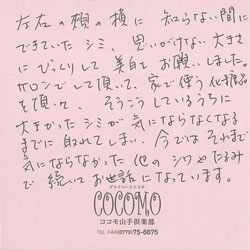 左右の頬の横に 知らない間に
できていたシミ、思いがけない大きさ
にびっくりして美白をお願いしました。
サロンでして頂いて、家で使う化粧品
を頂いて、そうこうしているうちに
大きかったシミが気にならなくなる
までに取れてしまい、今ではそれまで
気にならなかった他のシワやたるみ
で続いてお世話になっています。
プライベートエステ
COCOMO
ココモ山手倶楽部
TEL・FAX(0773)75-6675